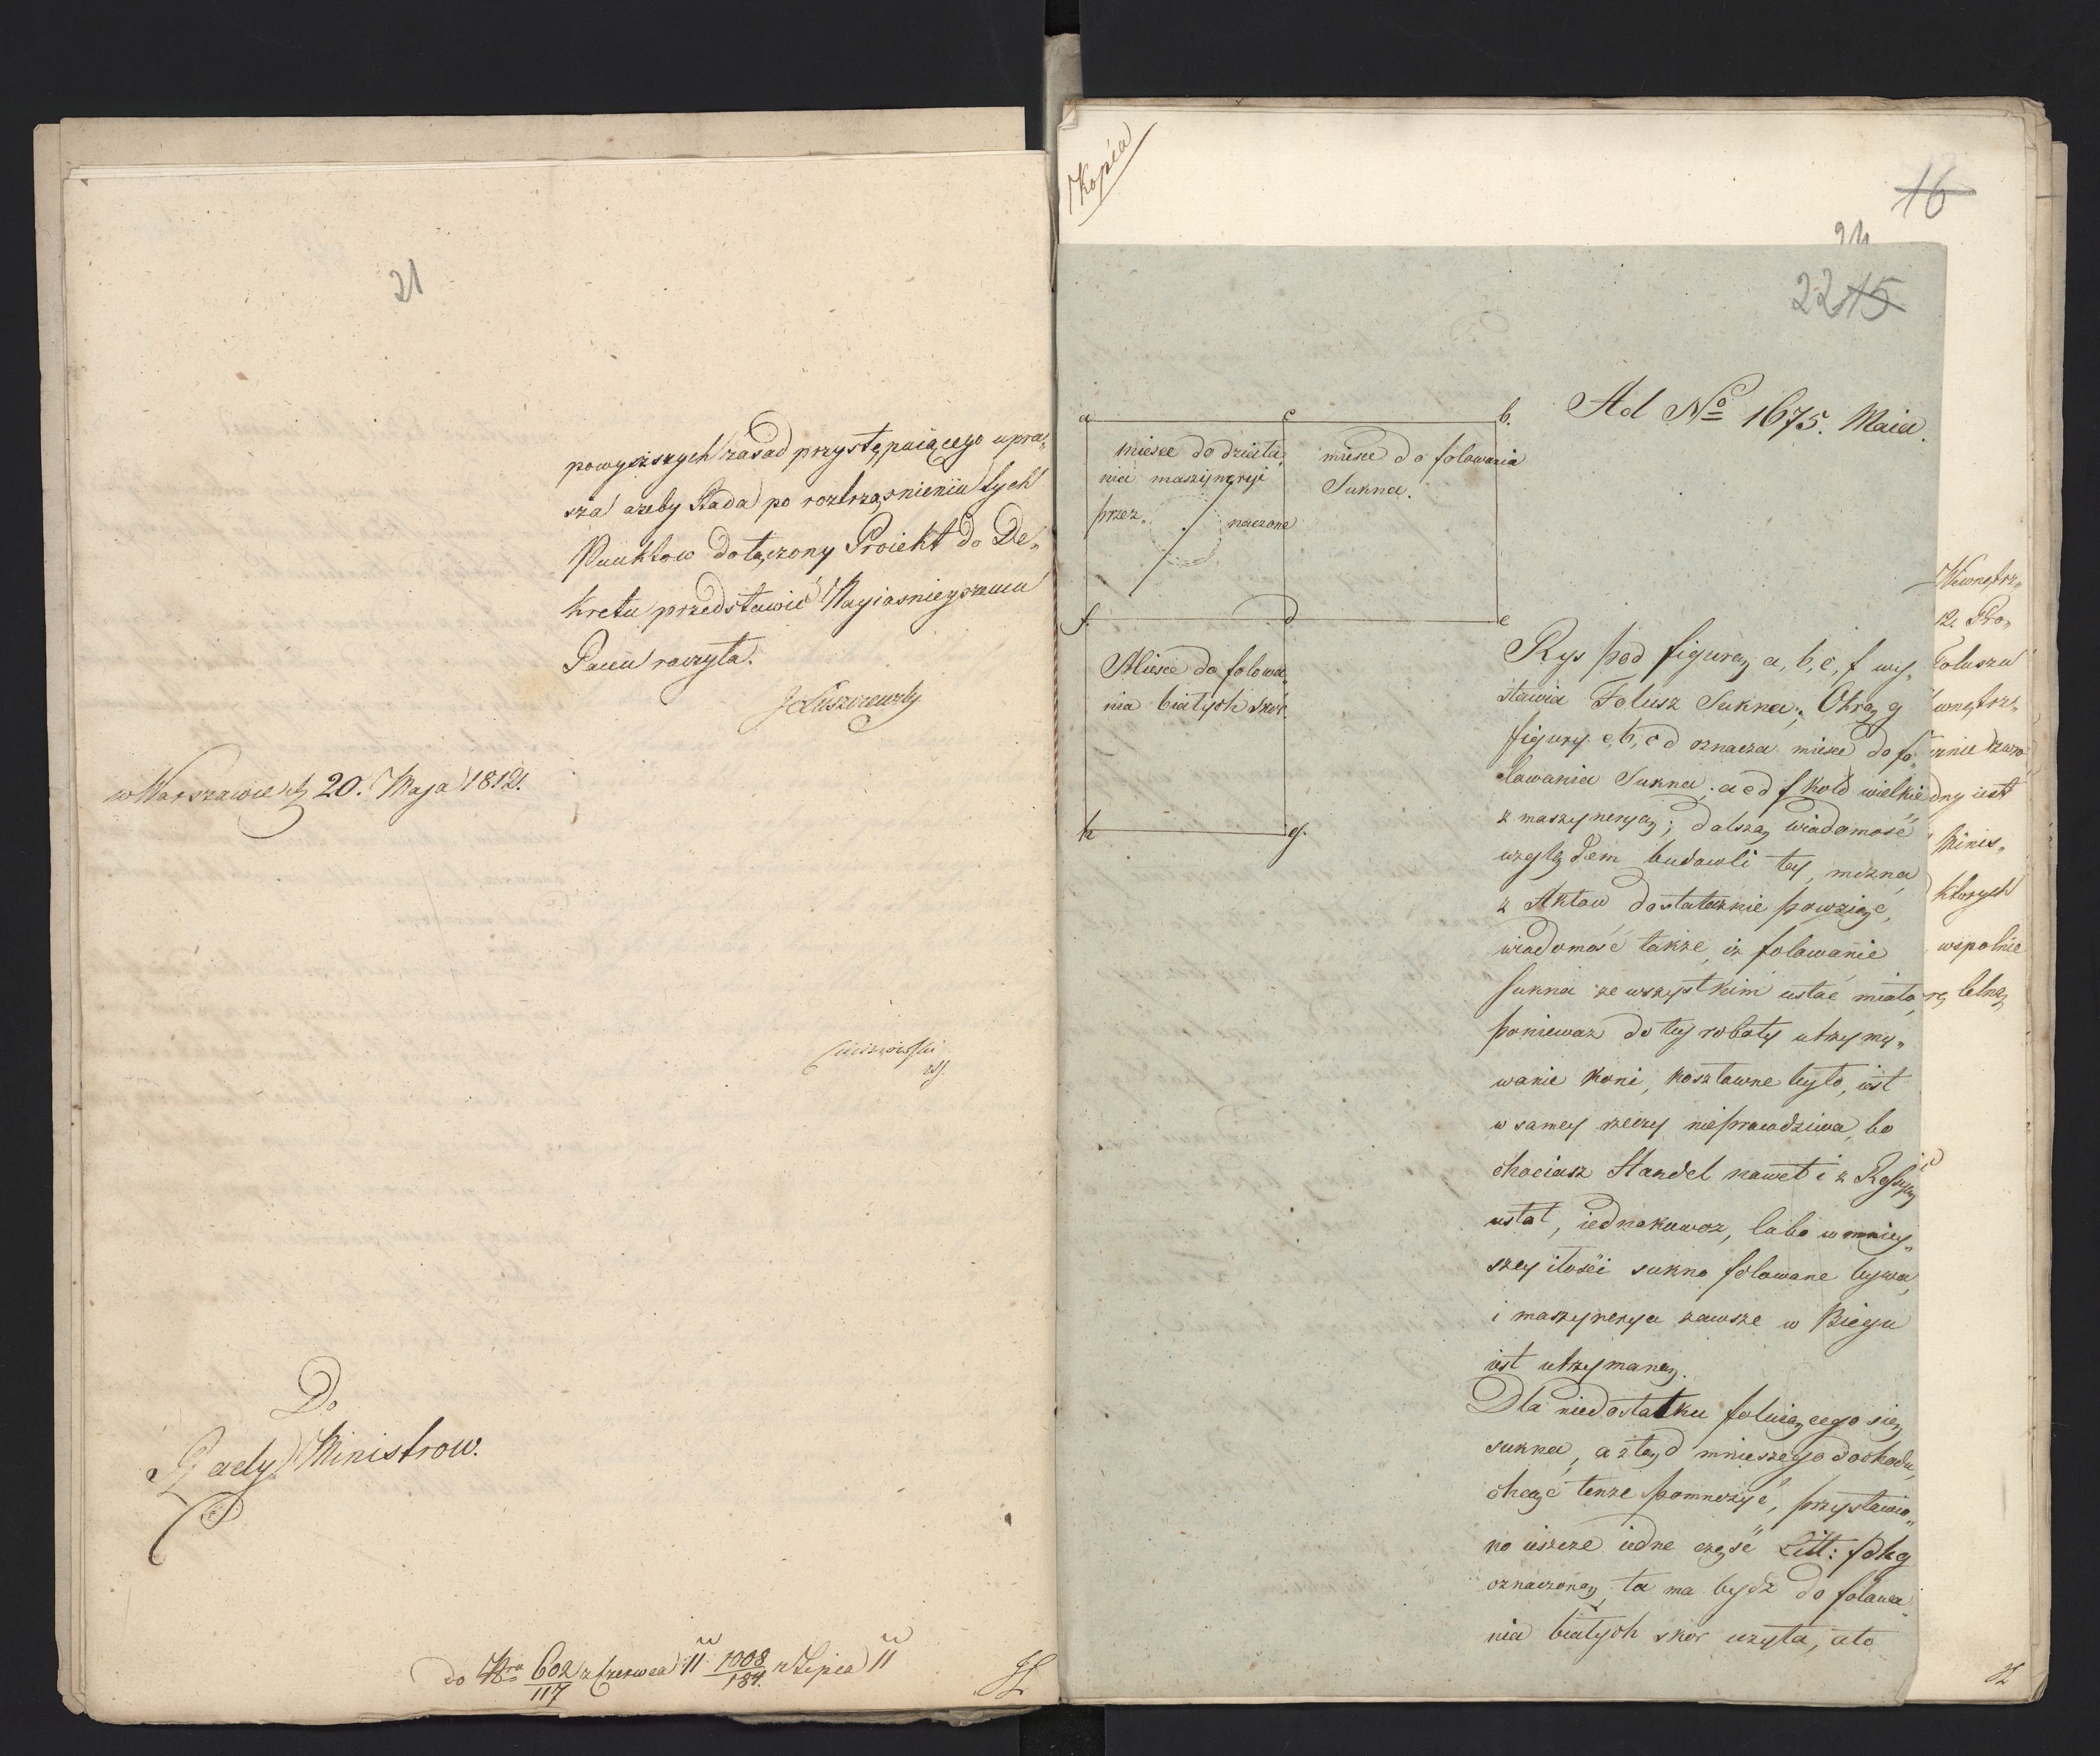 21
powyższych zasad przystępuiącego upra„
sza ażeby Rada po roztrząsnieniu tych
Punktow dołączony Proiekt do De„
kretu przedstawić Nayiasnieyszemu
Panu raczyła.
JŁuszczewsky
w Warszawie d. 20. Maja 1812.
Do
Rady Ministrow.
do Nra 602/117 z Czerwca 11 1008/184. z Lipca 11
Kopia
16
24
22 15
Ad No 1675. Maia.
a c b.
miesce do działa„
nia maszyneryi
przez„ naczone
miesce do folowania
Sukna.
f. d e
Miesce do folowa„
nia białych skor.
h g.
Rys pod figurą a, b, e, f wy„
stawia Folusz Sukna; Okrąg
figury e, b, c d oznacza miesce do fo„
lowania Sukna; a c d f koło wielkie
z maszyneryą; dalszą wiadomość
względem budowli tey, można
z Aktow dostatecznie powziąć,
wiadomość także, iż folowanie
Sukna ze wszystkim ustać miało,
ponieważ do tey roboty utrzymy„
wanie koni, kosztowne było, iest
w samey rzeczy nieprawdziwa, bo
chociasz Handel nawet i z Rossyią
ustał, iednakowoz, lubo w mniey„
szey ilości sukno folowane bywa,
i maszynerya zawsze w Biegu
iest utrzymaną.
Dla niedostatku foluiącego się
sukna, a ztąd mnieszego dochodu,
chcąc tenże pomnożyć, przystawio„
no ieszcze iedne część Litt: f d h g
oznaczoną, ta ma bydz do folowa„
nia białych skor użyta, ato
Wewnętrz„
Folusza
wnętrz„
dny iest
Minis„
ktorych
wspolnie
letną